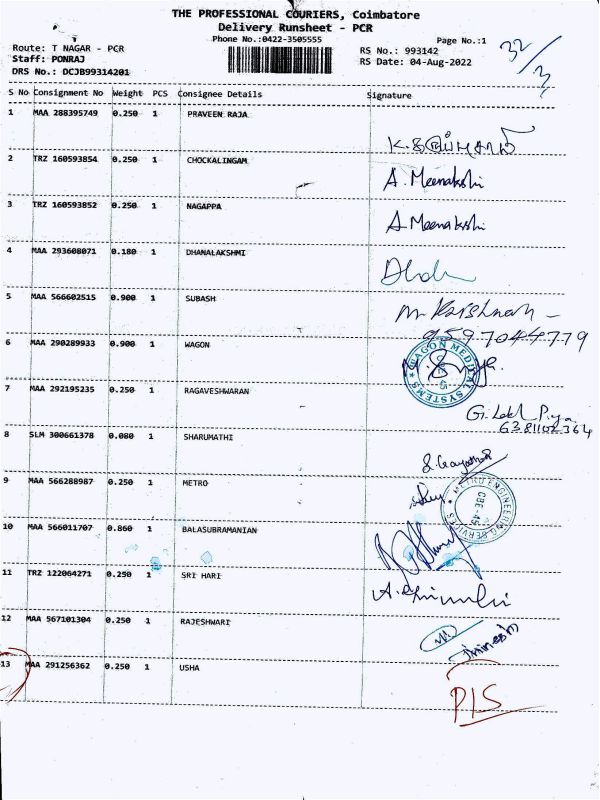 THE PROFESSIONAL COURIERS, Coimbatore
Delivery Runsheet - PCR
Phone No.:0422-3505555
Page No.:1
32/3
Route: T NAGAR - PCR
RS No.: 993142
Staff: PONRAJ
RS Date: 04-Aug-2022
DRS No.: DCJB99314201
S No Consignment No Weight PCS Consignee Details Signature
1 MAA 288395749 0.250 1 PRAVEEN RAJA
2 TRZ 160593854 0.250 1 CHOCKALINGAM A. Meenakshi
3 TRZ 160593852 0.250 1 NAGAPPA A Meenakshi
4 MAA 293608071 0.180 1 DHANALAKSHMI
5 MAA 566602515 0.900 1 SUBASH M Krishnan -
9597044779
6 MAA 290289933 0.900 1 WAGON
WAGON MEDICAL SYSTEMS
7 MAA 292195235 0.250 1 RAGAVESHWARAN
6381102364
8 SLM 300661378 0.080 1 SHARUMATHI
9 MAA 566288987 0.250 1 METRO
METRO ENGINEERING SERVICES
CBE-45
10 MAA 566011707 0.860 1 BALASUBRAMANIAN
11 TRZ 122064271 0.250 1 SRI HARI
12 MAA 567101304 0.250 1 RAJESHWARI
13 MAA 291256362 0.250 1 USHA
P/S